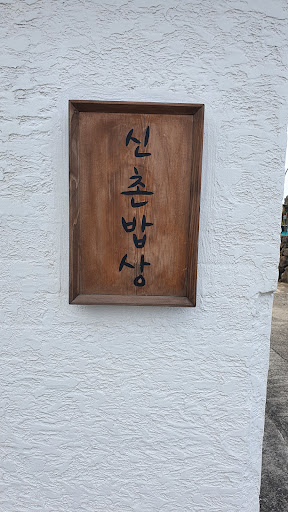 신촌밥상